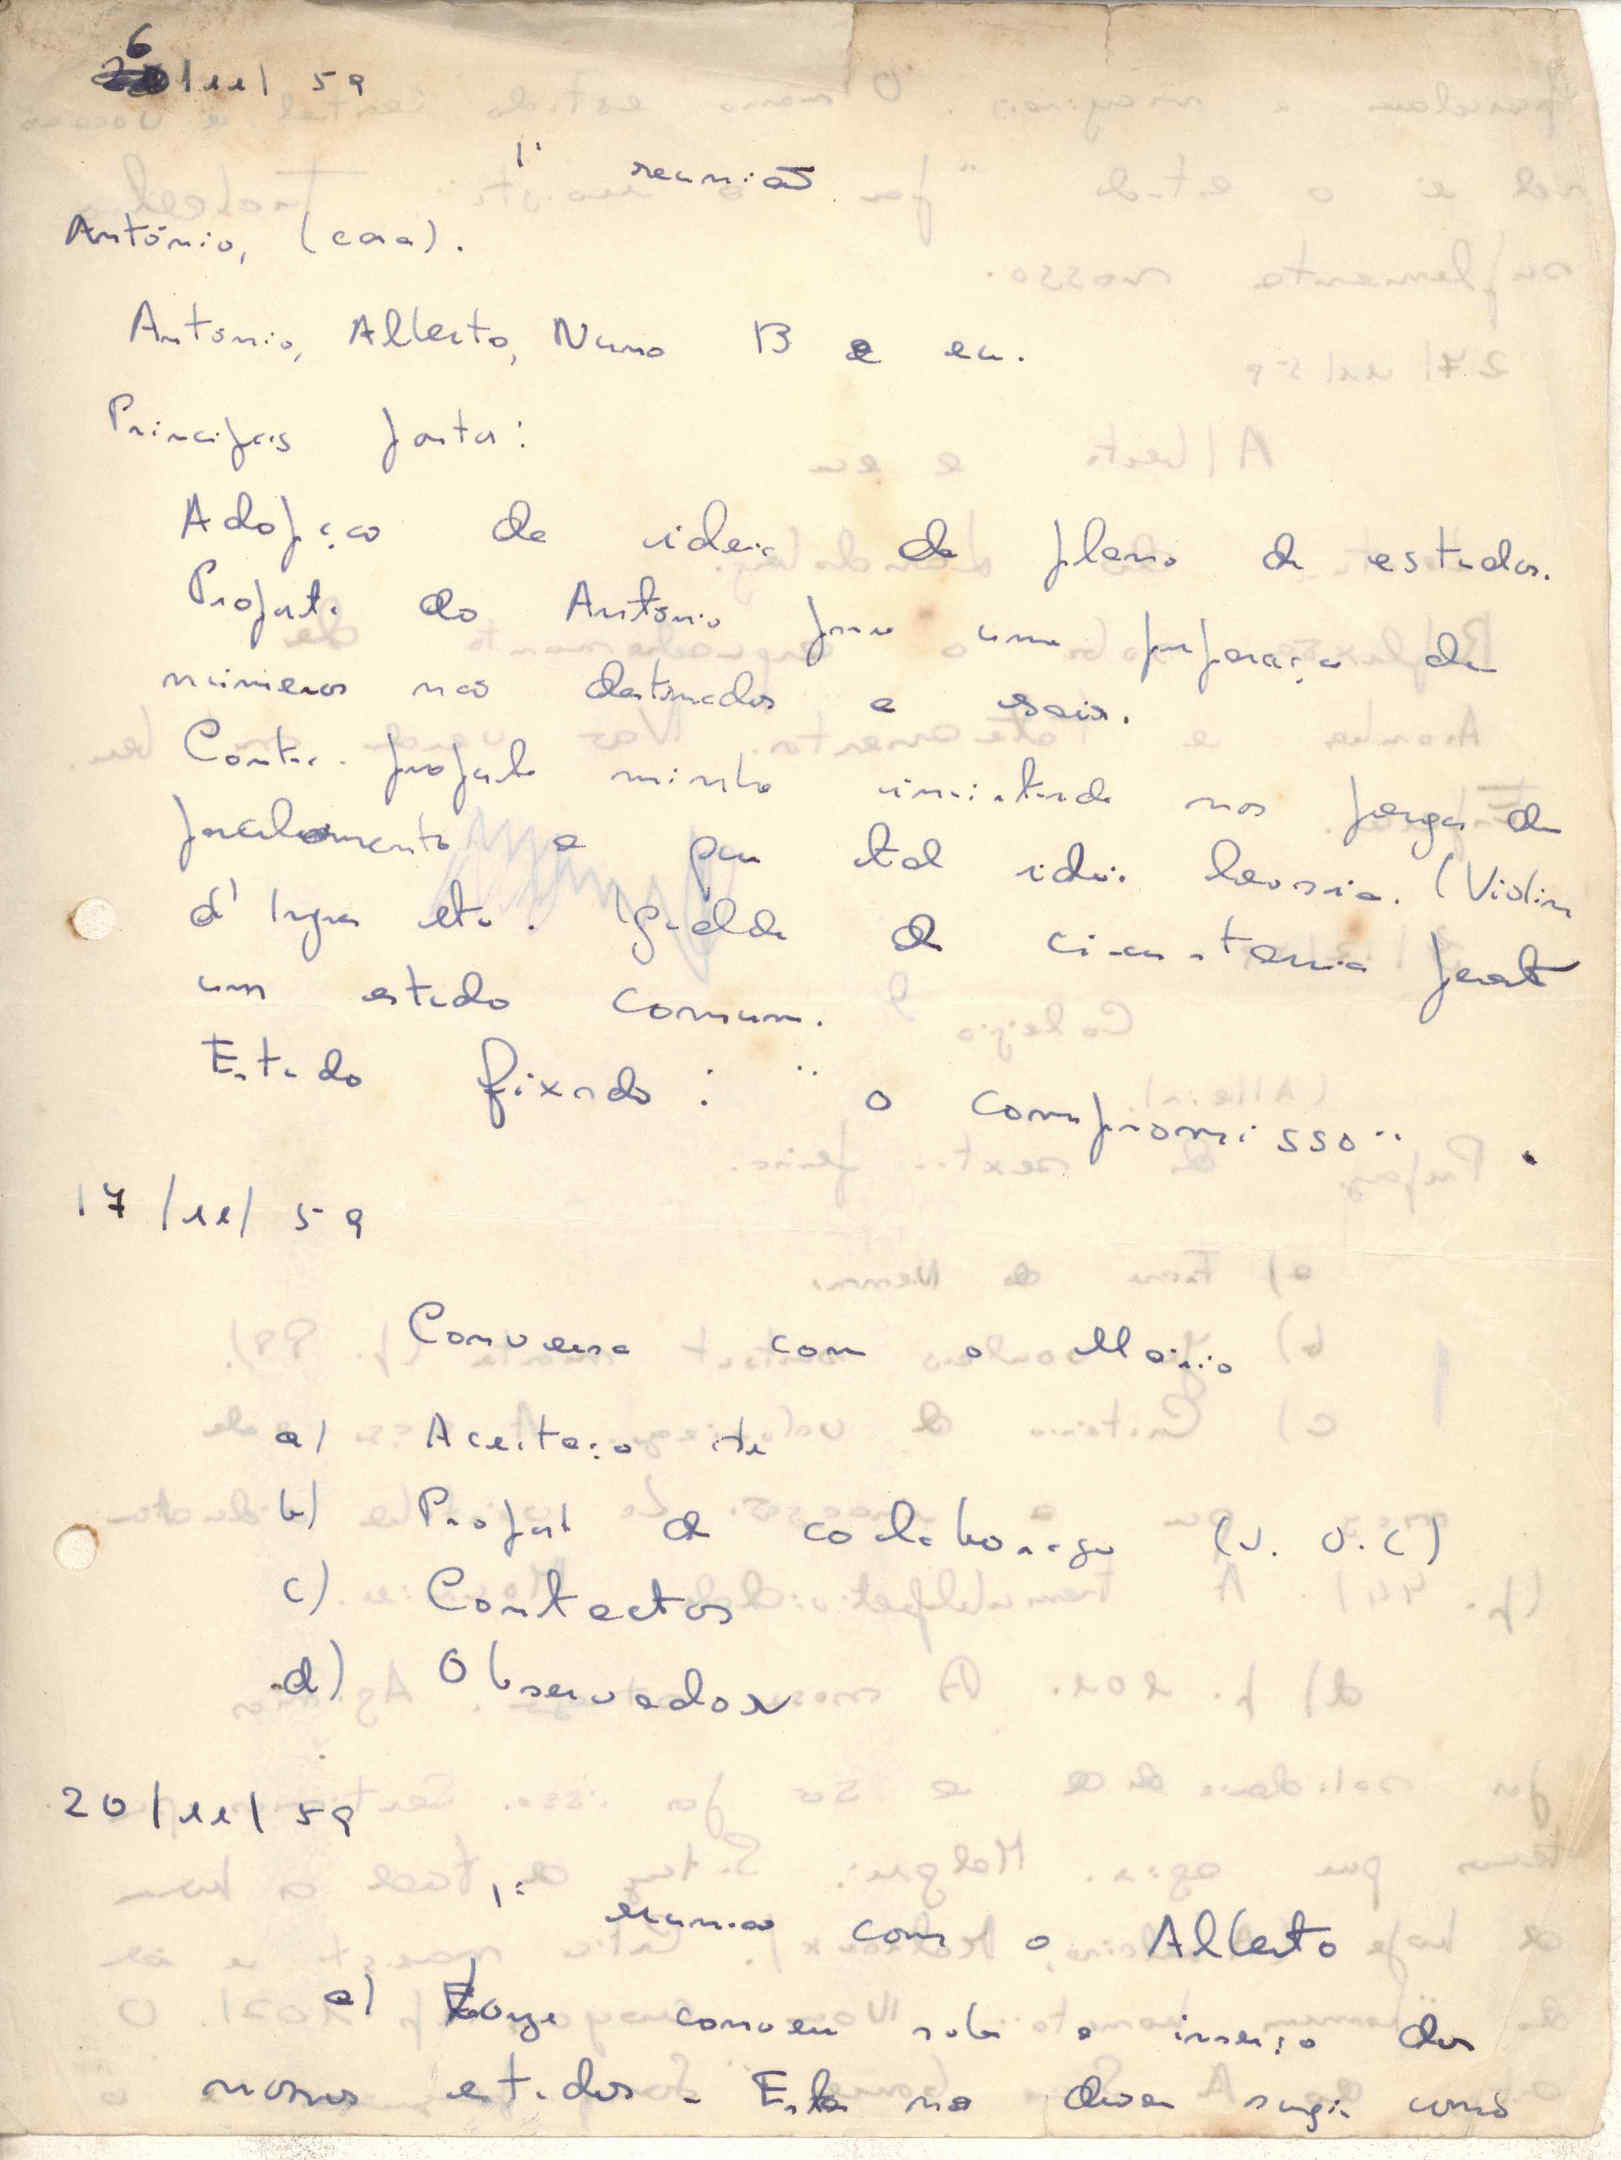 6/11/59
1ª reunião
António, (casa).
António, Alberto, Nuno B e eu.
Principais pontos:
Adopção da ideia de plano de estudos.
Proposta do António para uma preparação de
números não destinados a sair.
Contra-proposta minha no perigo de
e que tal ideia havia. (Violon
d'Ingres etc. Igualdade de circunstancia perante
um estudo comum.
Estudo fixado: "o compromisso".
17/11/59
Conversa com o Mário
a) Aceitação
b) Proposta de colaboração (J. U. C)
c) Contactos
d) Observador
20/11/59
1ª reunião com o Alberto
a) Longa conversa sobre a inserção dos
nossos estudos. Estes não devem surgir como